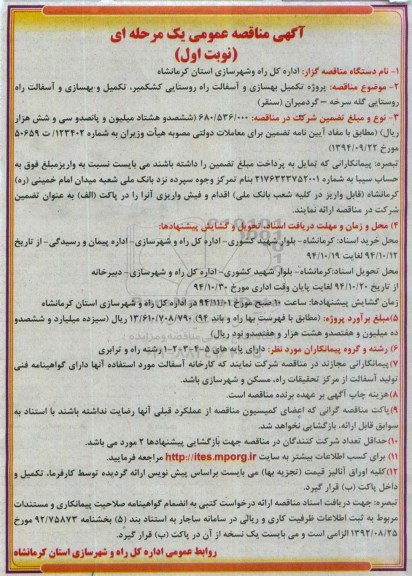 آگهی مناقصه عمومی یک مرحله ای
(نوبت اول)
۱- نام دستگاه مناقصه گزار: اداره کل راه وشهرسازی استان کرمانشاه
۲- موضوع مناقصه: پروژه تکمیل بهسازی و آسفالت راه روستایی کشکمیر، تکمیل و بهسازی و آسفالت راه
روستایی گله سرخه – گردمیران (سنقر)
۳- نوع و مبلغ تضمین شرکت در مناقصه: ۶۸۰/۵۳۶/۰۰۰ (ششصدو هشتاد میلیون و پانصدو سی و شش هزار
ریال) (مطابق با مفاد آیین نامه تضمین برای معاملات دولتی مصوبه هیأت وزیران به شماره ۱۲۳۴۰۲/ ت ۵۰۶۵۹
مورخ ۱۳۹۴/۰۹/۲۲)
تبصره: پیمانکارانی که تمایل به پرداخت مبلغ تضمین را داشته باشند می بایست نسبت به واریزمبلغ فوق به
حساب سیبا به شماره ۲۱۷۶۴۲۳۷۵۲۰۰۱ بنام تمرکز وجوه سپرده نزد بانک ملی شعبه میدان امام خمینی (ره)
کرمانشاه (قابل واریز در کلیه شعب بانک ملی) اقدام و فیش واریزی آنرا را در پاکت (الف) به عنوان تضمین
شرکت در مناقصه ارائه نمایند.
۴) محل و زمان و مهلت دریافت اسناد، تحویل و گشایش پیشنهادها:
محل خرید اسناد: کرمانشاه- بلوار شهید کشوری – اداره کل راه و شهرسازی- اداره پیمان و رسیدگی- از تاریخ
۹۴/۱۰/۱۲ لغایت ۹۴/۱۰/۱۹
محل تحویل اسناد: کرمانشاه- بلوار شهید کشوری- اداره کل راه و شهرسازی- دبیرخانه
از تاریخ ۹۴/۱۰/۲۰ لغایت پایان وقت اداری مورخ ۹۴/۱۰/۳۰
زمان گشایش پیشنهادها: ساعت ۱۰ صبح مورخ ۹۴/۱۱/۰۱ در اداره کل راه و شهرسازی استان کرمانشاه
۵)مبلغ برآورد پروژه: (مطابق با فهرست بها راه و باند ۹۴) ۱۳/۶۱۰/۷۰۸/۷۹۰ ریال (سیزده میلیارد و ششصدو
ده میلیون و هفتصدو هشت هزار و هفتصدو نود ریال)
۶) رشته و گروه پیمانکاران مورد نظر: دارای پایه های ۵-۴-۳-۲-۱ رشته راه و ترابری
۷) پیمانکارانی مجازند در مناقصه شرکت نمایند که کارخانه آسفالت مورد استفاده آنها دارای گواهینامه فنی
تولید آسفالت از مرکز تحقیقات راه، مسکن و شهرسازی باشد.
۸) هزینه چاپ آگهی بر عهده برنده مناقصه است.
۹) پاکت مناقصه گرانی که اعضای کمیسیون مناقصه از عملکرد قبلی آنها رضایت نداشته باشند با استناد به
سوابق قابل ارائه، بازگشایی نخواهد شد.
۱۰) حداقل تعداد شرکت کنندگان در مناقصه جهت بازگشایی پیشنهادها ۲ مورد می باشد.
۱۱) برای کسب اطلاعات بیشتر به سایت http://ites.mporg.ir مراجعه فرمایید.
۱۲)کلیه اوراق آنالیز قیمت (تجزیه بها) می بایست براساس پیش نویس ارائه گردیده توسط کارفرما، تکمیل و
داخل پاکت (ب) قرار گیرد.
تبصره: جهت دریافت اسناد مناقصه ارائه درخواست کتبی به انضمام گواهینامه صلاحیت پیمانکاری و مستندات
مربوط به ثبت اطلاعات ظرفیت کاری و ریالی در سامانه ساجار به استناد بند (۵) بخشنامه ۹۲/۷۵۸۷۳ مورخ
۱۳۹۲/۰۸/۲۵ الزامی است و می بایست یک نسخه از آن در پاکت (ب) قرار گیرد.
روابط عمومی اداره کل راه و شهرسازی استان کرمانشاه